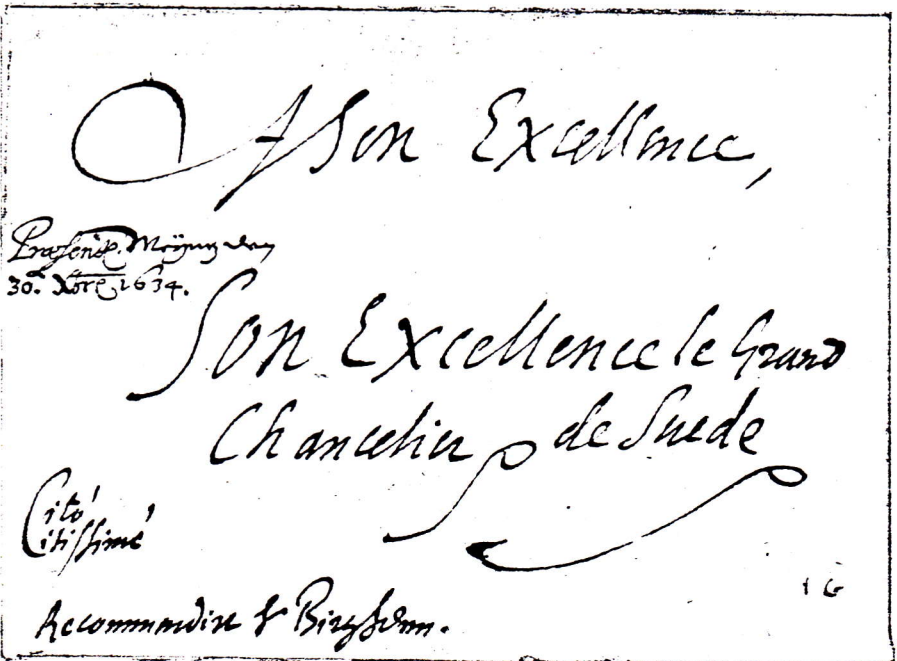 A Son Excellence,
Præsent. Meÿntz den
30. Xbre 1634.
Son Excellence le Grand
Chancelier de Suede
Citó
Citissimé
Accommandirt